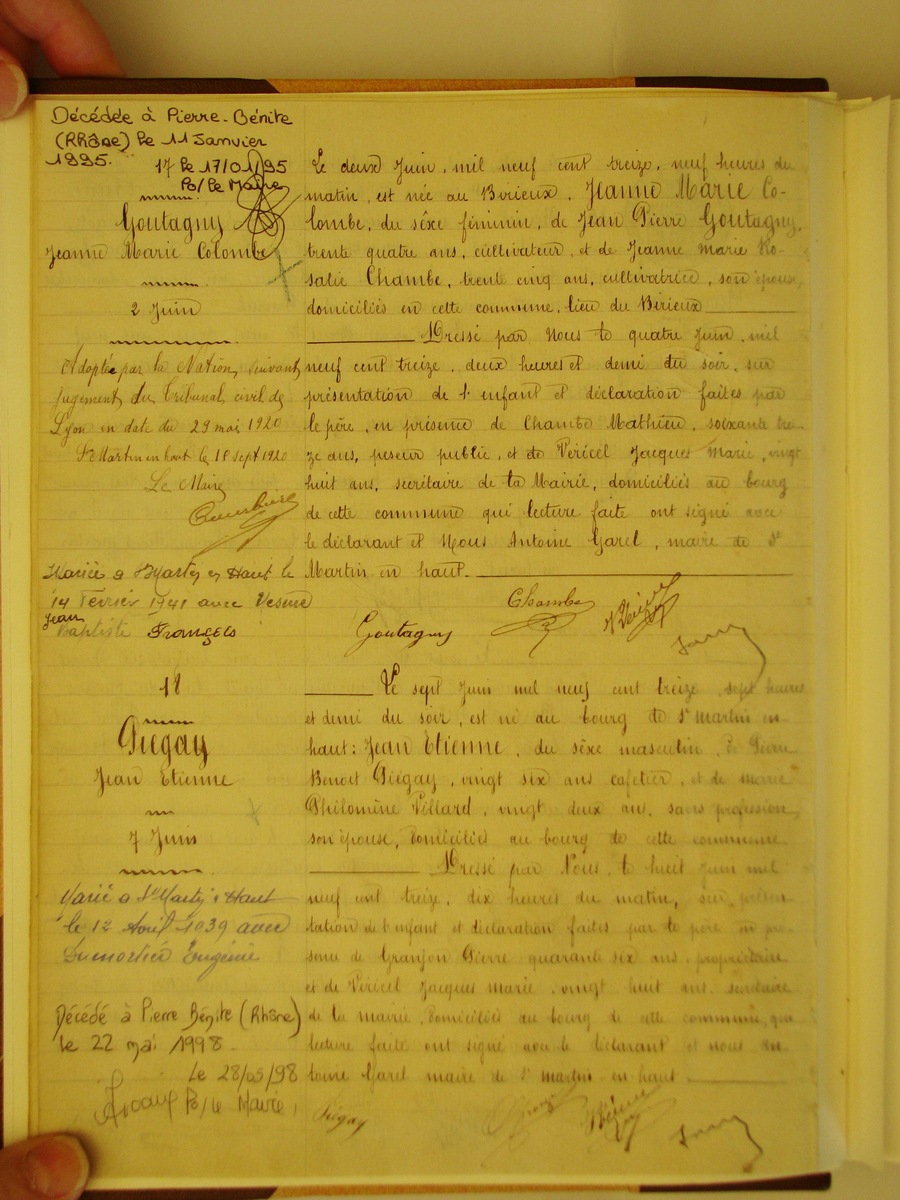 Décédée à Pierre-Bénite
(Rhône) le 11 Janvier
1995.
17 le 17/01/95
Po/le Maire
Goutagny
Jeanne Marie Colombe
2 Juin
Adoptée par la Nation, suivant
jugement du Tribunal civil de
Lyon en date du 29 mai 1920
St Martin en haut le 18 sept 1920
Le Maire
Mariée à St Martin en Haut le
14 Février 1941 avec Vesme
Jean
Baptiste François
Le deux Juin, mil neuf cent treize, neuf heures du
matin, est née au Birieux, Jeanne Marie Co-
lombe, du sêxe féminin, de Jean Pierre Goutagny,
trente quatre ans, cultivateur, et de Jeanne Marie Ro-
salie Chambe, trente cinq ans, cultivatrice, son épouse,
domiciliés en cette commune, lieu du Birieux
Dressé par Nous le quatre Juin, mil
neuf cent treize, deux heures et demi du soir, sur
présentation de l'enfant et déclaration faites par
le père, en présence de Chambe Mathieu, soixante trei-
ze ans, peseur public, et de Péricel Jacques Marie, vingt
huit ans, secrétaire de la Mairie, domiciliés au bourg
de cette commune qui lecture faite ont signé avec
le déclarant et Nous Antoine Garel, maire de St
Martin en haut.
Goutagny Chambe
18
Piégay
Jean Etienne
7 Juin
Marié à St Martin en Haut
le 12 Avril 1939 avec
Dumortier Eugénie
Décédé à Pierre Bénite (Rhône)
le 22 mai 1998.
Le 28/05/98
Po/le Maire,
Le sept Juin mil neuf cent treize, sept heures
et demi du soir, est né au bourg de St Martin en
haut: Jean Etienne, du sêxe masculin, de Jean
Benoit Piégay, vingt six ans cafetier, et de Marie
Philomène Villard, vingt deux ans, sans profession,
son épouse, domiciliés au bourg de cette commune
Dressé par Nous, le huit Juin mil
neuf cent treize, dix heures du matin, sur présen-
tation de l'enfant et déclaration faites par le père en pré-
sence de Granjon Pierre quarante six ans, propriétaire
et de Péricel Jacques Marie, vingt huit ans, secrétaire
de la mairie, domiciliés au bourg de cette commune, qui
lecture faite ont signé avec le déclarant et nous An-
toine Garel maire de St Martin en haut
Piégay